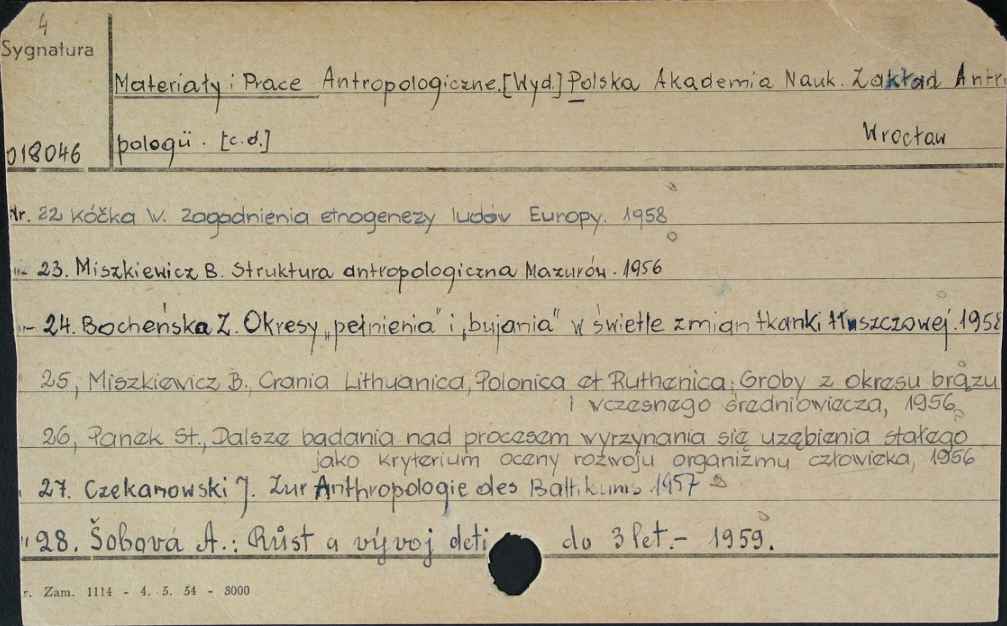 4
Sygnatura
Materiały i Prace Antropologiczne. [Wyd.] Polska Akademia Nauk. Zakład Antro
pologii. [c.d.] Wrocław
018046
Nr. 22 Kóčka W. Zagadnienia etnogenezy ludów Europy. 1958
"- 23. Miszkiewicz B. Struktura antropologiczna Mazurów. 1956
"- 24. Bocheńska Z. Okresy „pełnienia" i „bujania" w świetle zmian tkanki tłuszczowej. 1958
25, Miszkiewicz B., Crania Lithuanica, Polonica et Ruthenica; Groby z okresu brązu
i wczesnego średniowiecza, 1956
26, Panek St., Dalsze badania nad procesem wyrzynania się uzębienia stałego
jako kryterium oceny rozwoju organizmu człowieka, 1956
27. Czekanowski J. Zur Anthropologie des Baltikums 1957
" 28. Šobová A.: Růst a vývoj deti do 3 let. - 1959.
r. Zam. 1114 - 4. 5. 54 - 8000